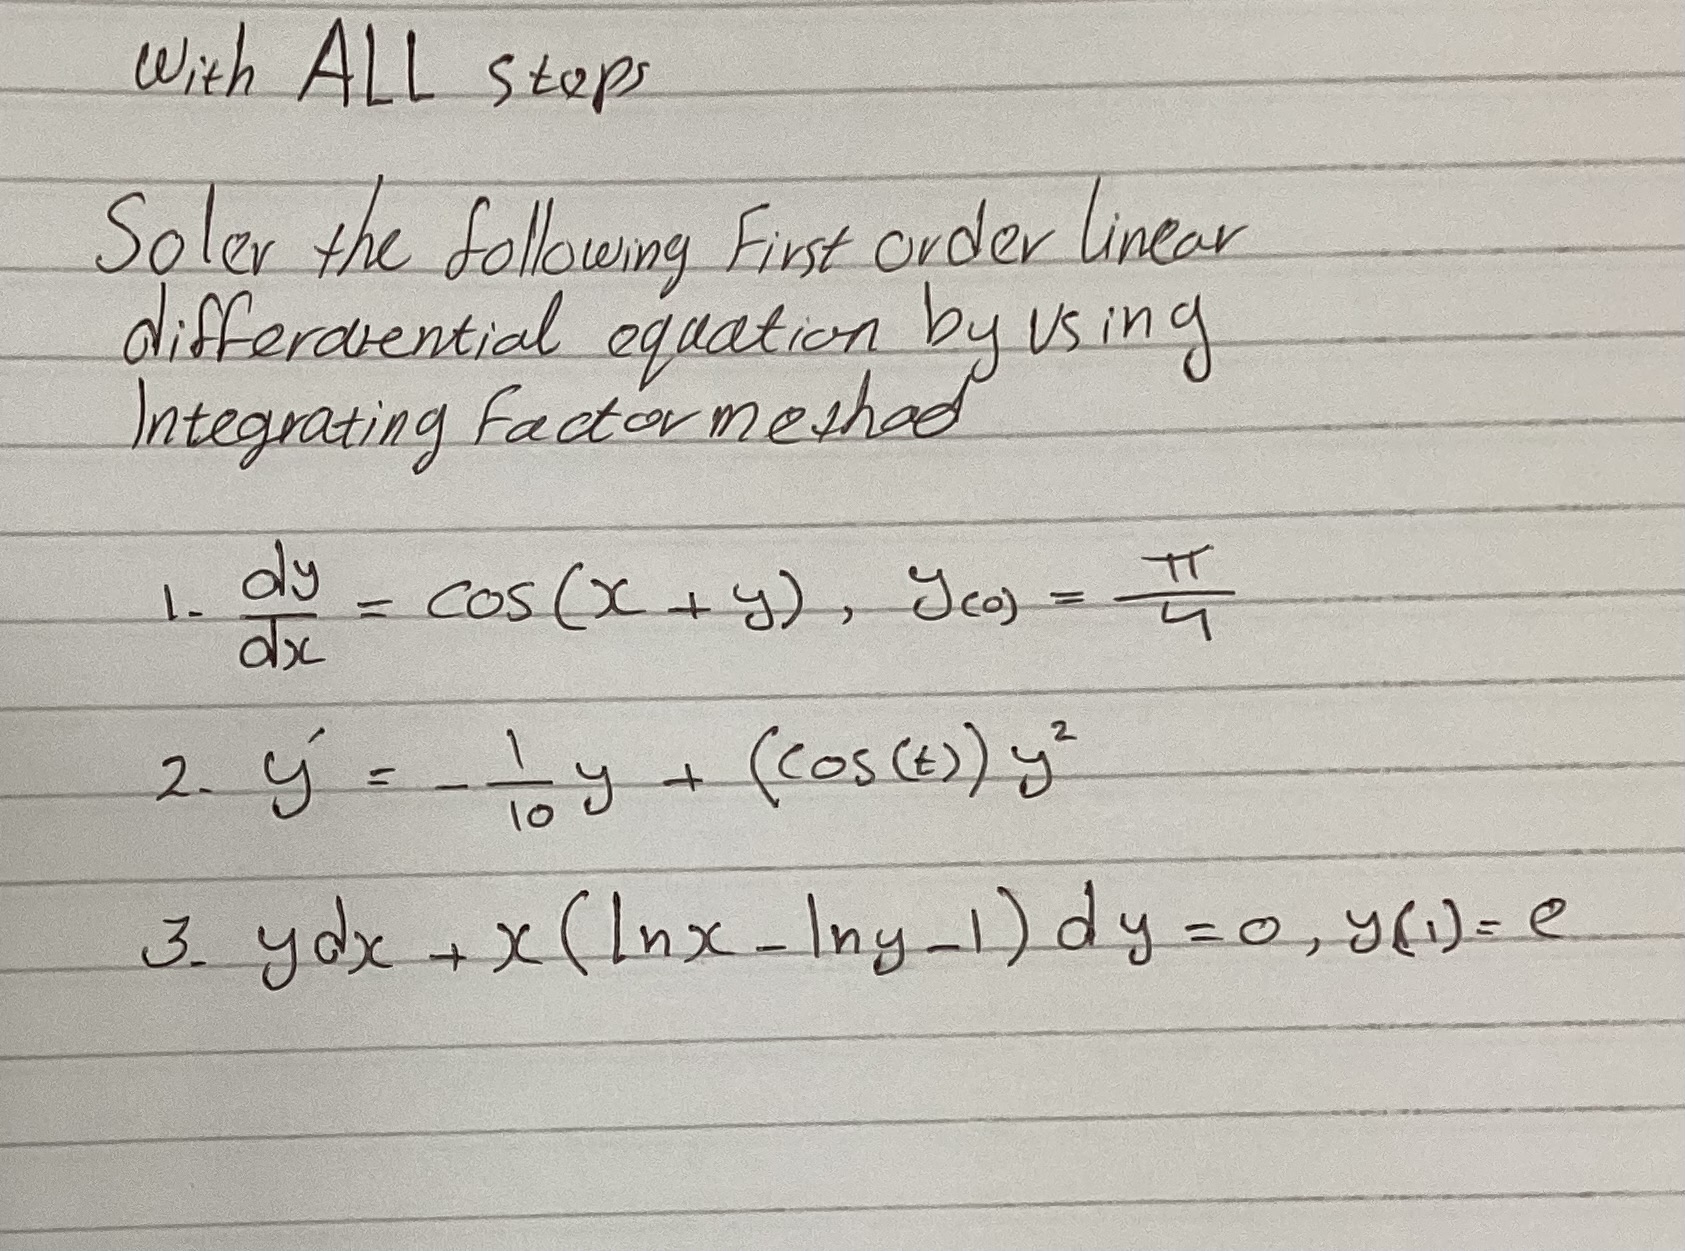 With ALL steps
Soler the following First order linear
differarential equation by using
Integrating factor meshod
1. dy/dx = cos(x + y), y(0) = π/4
2. y′ = - 1/10 y + (cos(t)) y²
3. ydx + x(lnx - lny - 1) dy = 0, y(1) = e